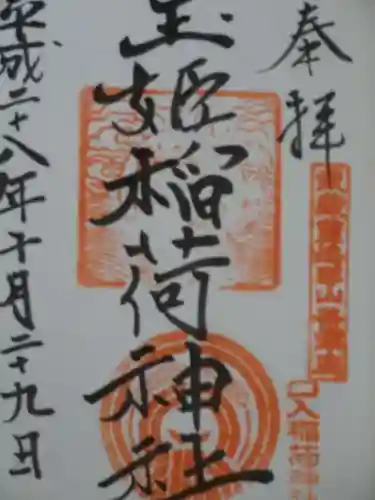 奉拝
玉姫稲荷神社
平成二十八年十月二十九日